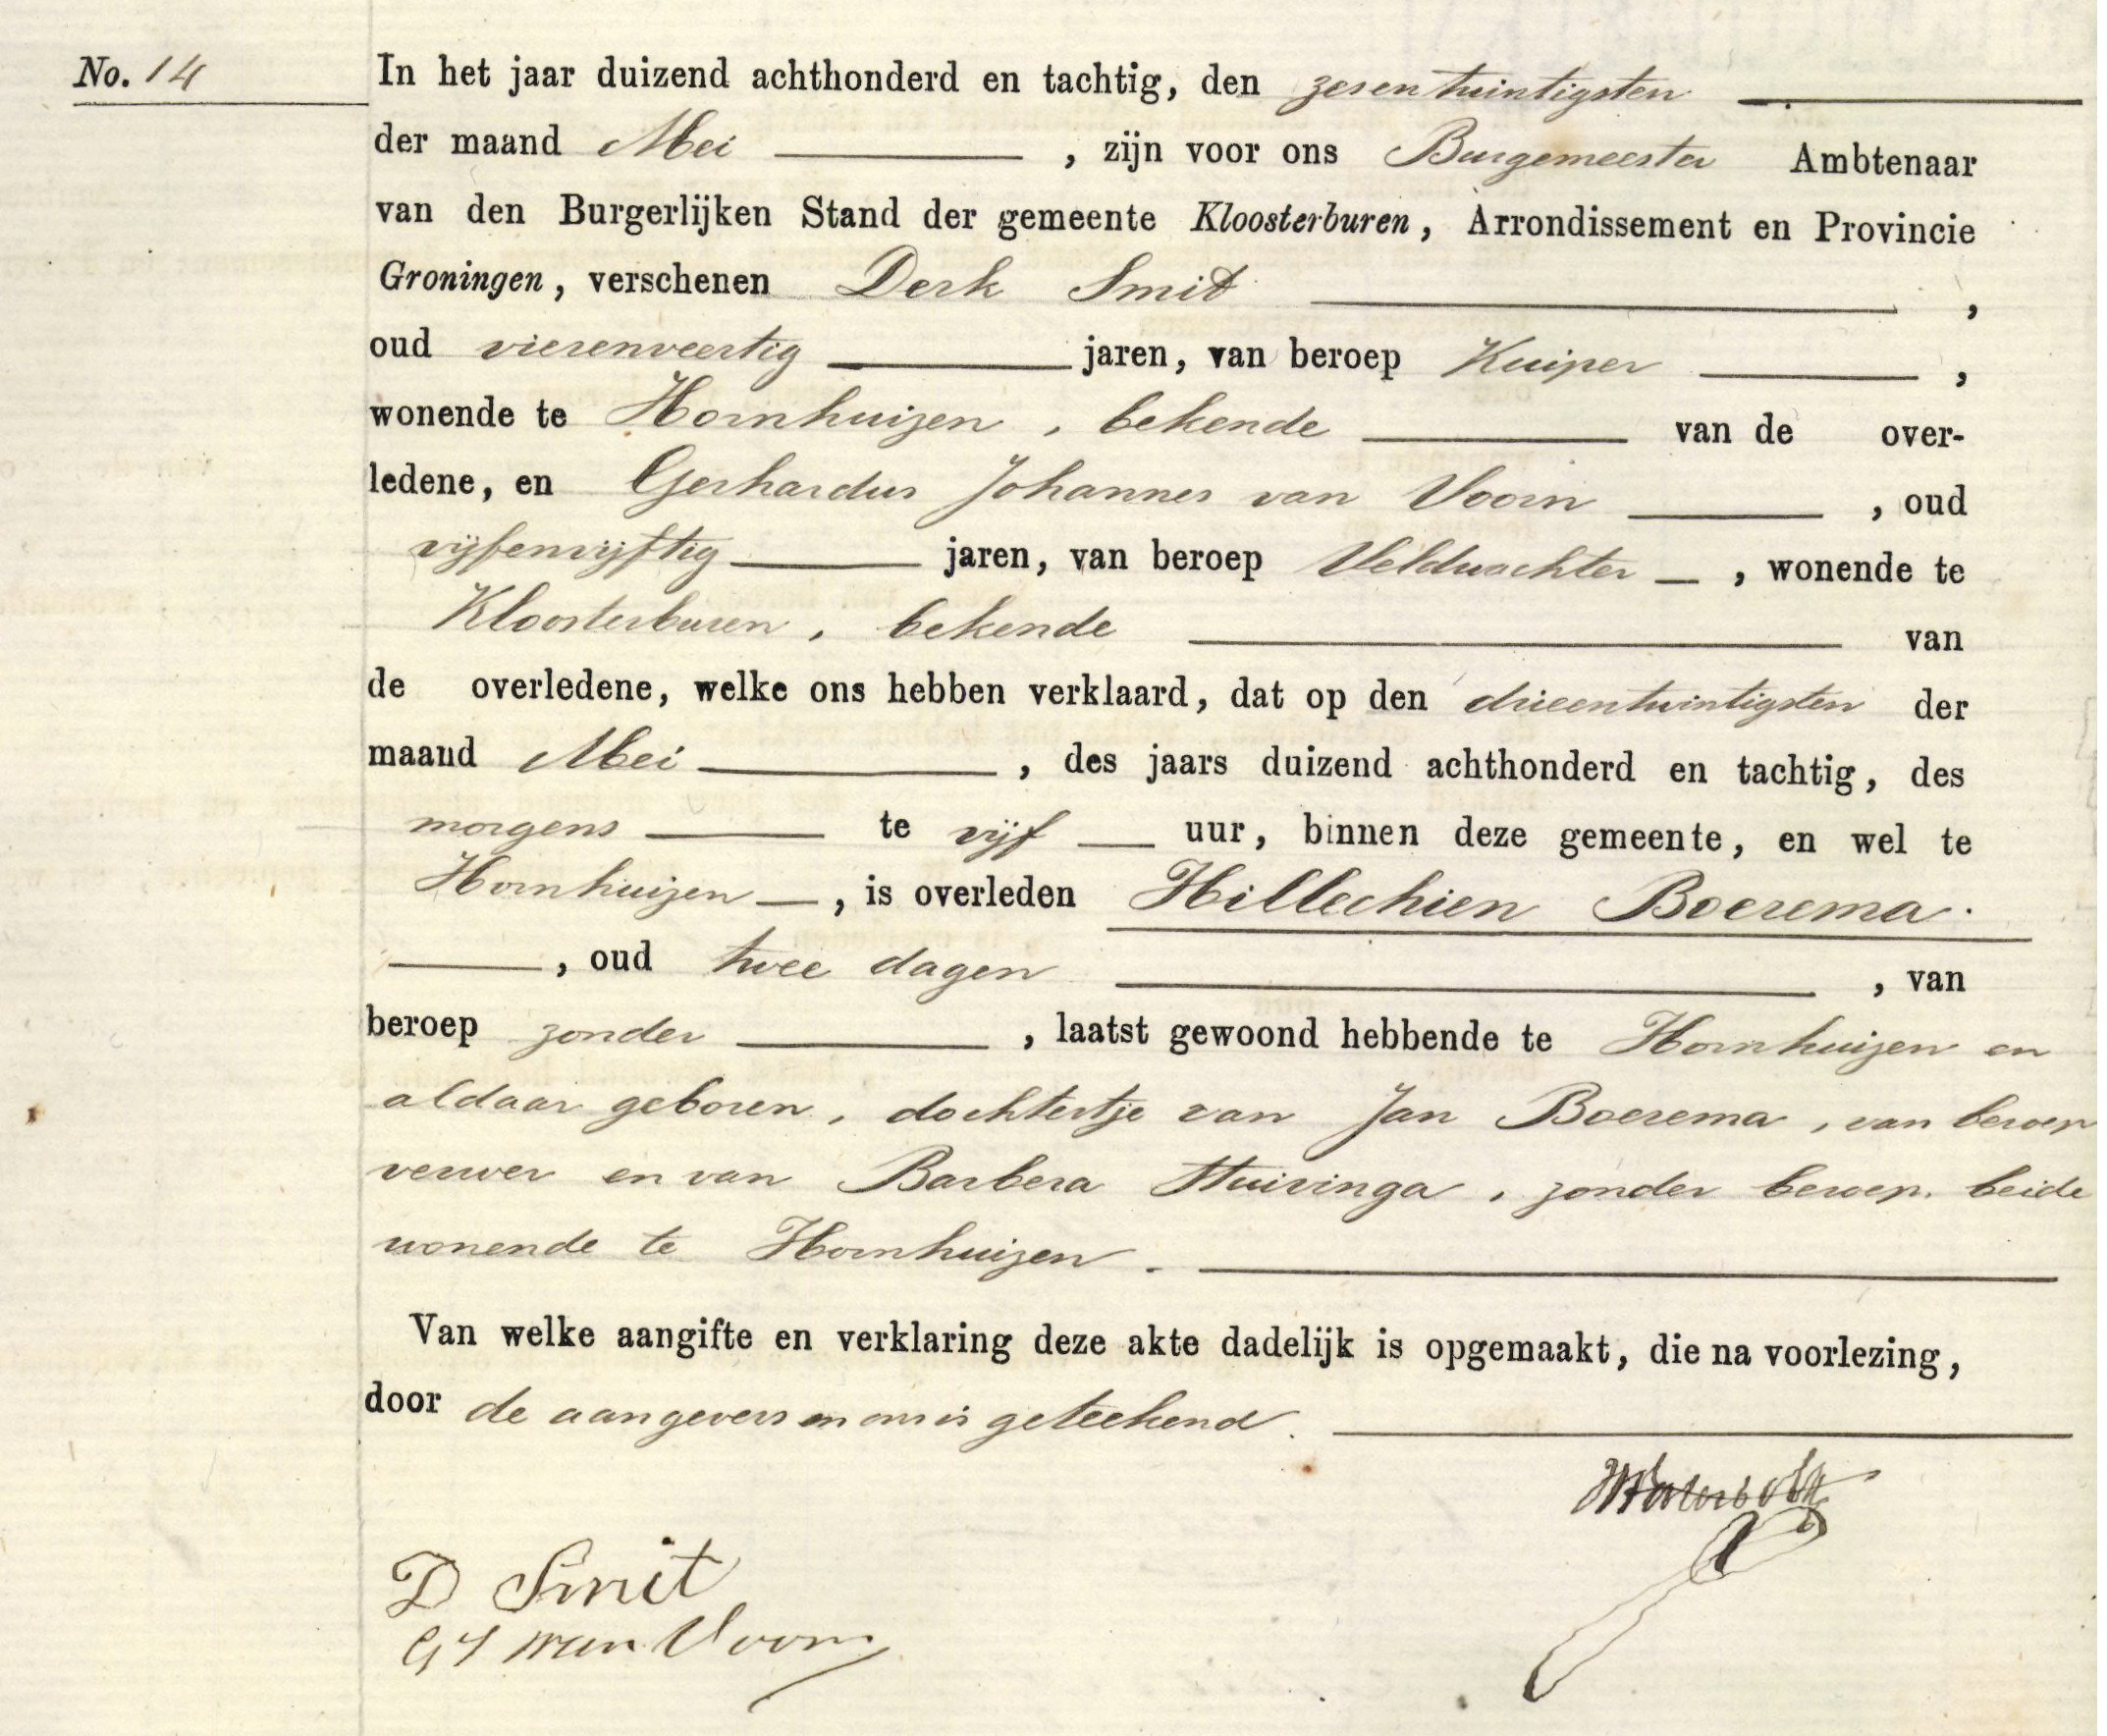 No. 14
In het jaar duizend achthonderd en tachtig, den zesentwintigsten
der maand Mei , zijn voor ons Burgemeester Ambtenaar
van den Burgerlijken Stand der gemeente Kloosterburen, Arrondissement en Provincie
Groningen, verschenen Derk Smit ,
oud vierenveertig jaren, van beroep Kuiper ,
wonende te Hornhuizen , bekende van de over-
ledene, en Gerhardus Johannes van Voorn , oud
vijfenvijftig jaren, van beroep Veldwachter , wonende te
Kloosterburen , bekende van
de overledene, welke ons hebben verklaard, dat op den drieentwintigsten der
maand Mei , des jaars duizend achthonderd en tachtig, des
morgens te vijf uur, binnen deze gemeente, en wel te
Hornhuizen , is overleden Hillechien Boerema.
, oud twee dagen , van
beroep zonder , laatst gewoond hebbende te Hornhuizen en
aldaar geboren, dochtertje van Jan Boerema, van beroep
verwer en van Barbera Huizinga, zonder beroep. beide
wonende te Hornhuizen.
Van welke aangifte en verklaring deze akte dadelijk is opgemaakt, die na voorlezing,
door de aangevers en ons is geteekend.
D Smit
GJ van Voorn